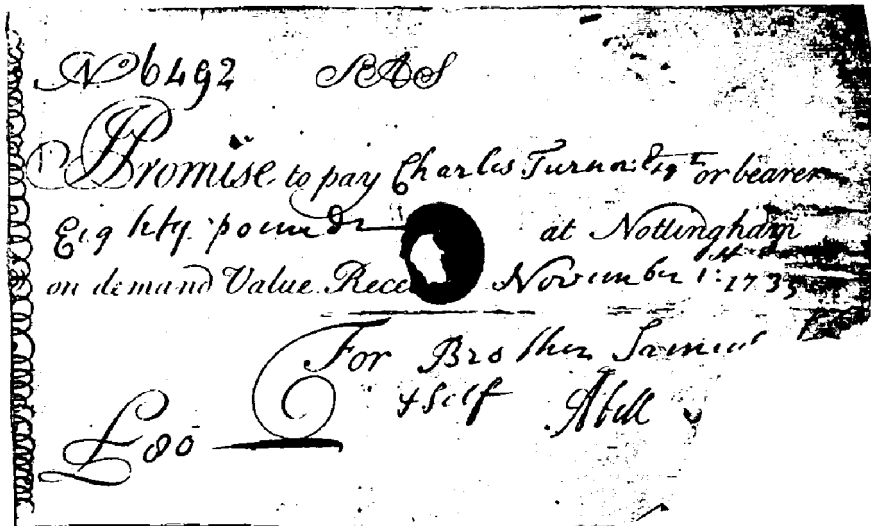 No 6492 SAS
I Promise to pay Charles Turner Esqr or bearer
Eighty pounds at Nottingham
on demand Value November 1st 1735
For Brother Samuel
& Self Abell
£80